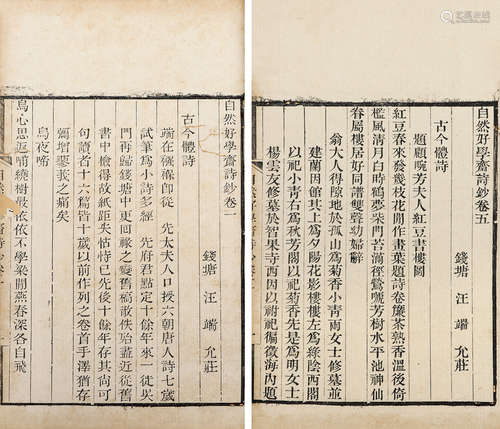 自然好學齋詩鈔卷一
錢塘 汪 端 允莊
古今體詩
端在襁褓卽從 先太夫人口授六朝唐人詩七歲
試筆爲小詩多經 先府君點定十餘年來一徙吳
門再歸錢塘中更回祿之變舊橐散佚殆盡近從舊
書中檢得故紙距失怙恃已先後十餘年存其尚可
句讀者十六篇皆十歲以前作列之卷首手澤猶存
彌增蓼莪之痛矣
烏夜啼
烏心思返哺繞樹最依依不學梁間燕春深各自飛
自然好學齋詩鈔卷五
錢塘 汪 端 允莊
古今體詩
題顧畹芳夫人紅豆書樓圖
紅豆春來發幾枝花閒作畫葉題詩卷簾茶熟香溫後倚
檻風清月白時鶴夢柴門苔滿徑鶯嗁芳樹水平池神仙
眷屬樓居好同譜雙聲幼婦辭
翁大人得隙地於孤山爲菊香小青兩女士修墓並
建蘭因館其上爲夕陽花影樓樓左爲綠陰西閣
以祀小青右爲秋芳閣以祀菊香先是爲明女士
楊雲友修墓於智果寺西因以祔祀徧徵海內題